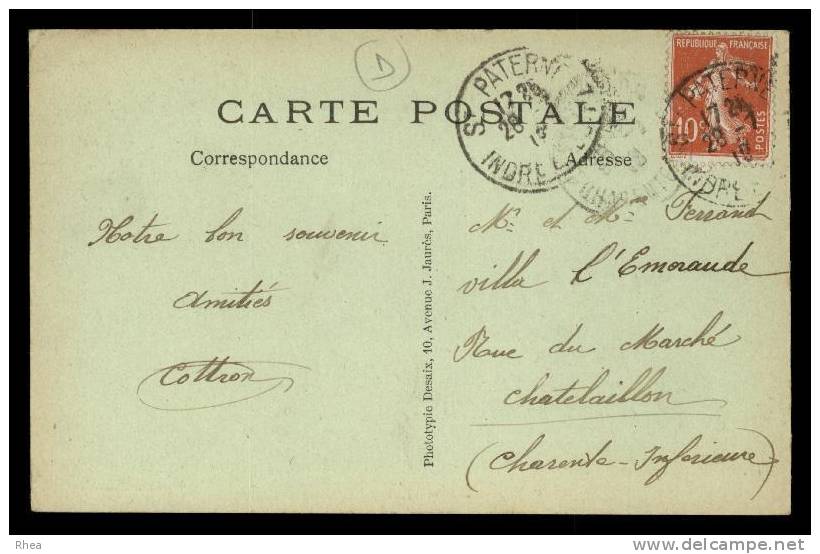 D
CARTE POSTALE
Correspondance
Adresse
REPUBLIQUE FRANÇAISE
10
POSTES
St PATERNE
17
28-7
INDRE
St PATERNE
17
28-7
INDRE
CHARENTE
Notre bon souvenir
Amitiés
Cottron
Phototypie Desaix, 10, Avenue J. Jaurès, Paris.
Mr et Mme Ferrand
villa l'Emeraude
Rue du Marché
Chatelaillon
(Charente-Inférieure)
Rhea
www.delcampe.net